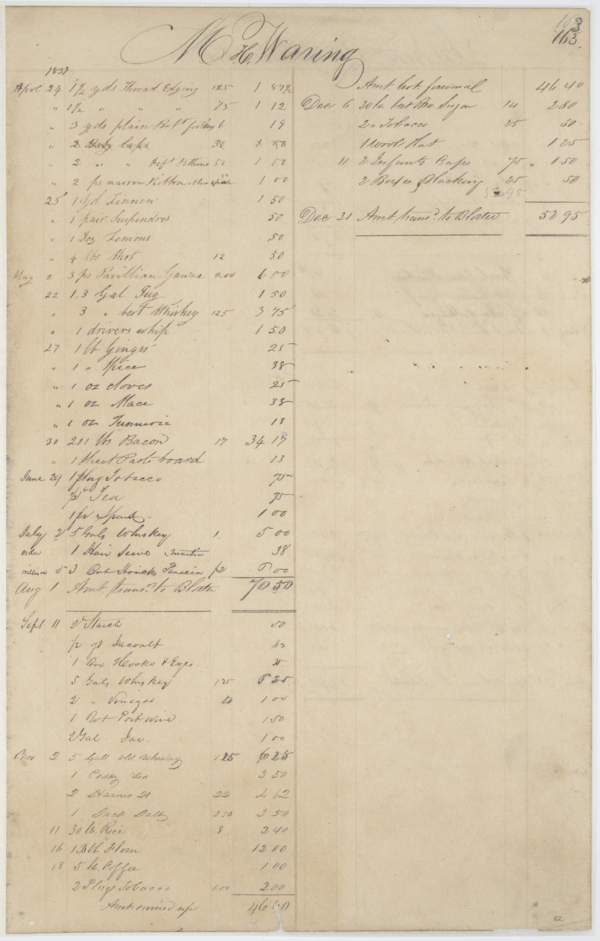 163
M H Waring
1837
April 24 1 1/2 yds Thread Edging 125 1 87 1/2
" 1 1/2 " " " 75 1 12
" 3 yds plain 6 19
" 2 Caps
" 2 " " 50 1 00
" 2 ps narrow Ribbon 1 00
25 1 Yd Linnen 1 50
" 1 pair Suspendres 50
" 1 Doz Lemons 50
" 4 lbs Shot 12 50
May 2 3 ps Pavillian Gauze 200 6 00
22 1.3 Gal Jug 1 50
" 3 " best Whiskey 125 3 75
" 1 drivers whip 1 50
27 1 lb Ginger 25
" 1 " Spice 38
" 1 oz cloves 25
" 1 oz Mace 38
" 1 oz Turmeric 13
30 201 lbs Bacon 17 34 17
" 1 Sheet Paste board 13
June 29 1 plug Tobacco 75
Tea 75
1 pr 1 00
July 2 5 Gals Whiskey 1. 5 00
1 Hair Sieve 38
5 3 6 00
Aug 1 Amt trans.d to Blotter 70 50
Sept 11 Starch 50
1/2 yd
1 Box Hooks & Eyes
5 Gals Whiskey 125 6 25
2 " Vinegar 50 1 00
1 Bot Port Wine 1 50
2 Gal Jar 1 00
Nov 2 5 Galls old Whiskey 125 6 25
1 3 50
2 22 4 62
1 Sack Salt 350 3 50
11 30 lb Rice 8 2 40
16 1 Bbl Flour 12 00
18 5 lb Coffee 1 00
2 Plugs Tobacco 100 2 00
Amt carried up 46 40
Amt bot forward 46 40
Dec 6 20 lb best Bro Sugar 14 2 80
2 " Tobacco 25 50
1 Wool Hat 1 25
11 2 Infants Caps 75 " 1 50
2 Boxes Blacking 25 50
52 95
Dec 31 Amt trans.d to Blotter 52 95